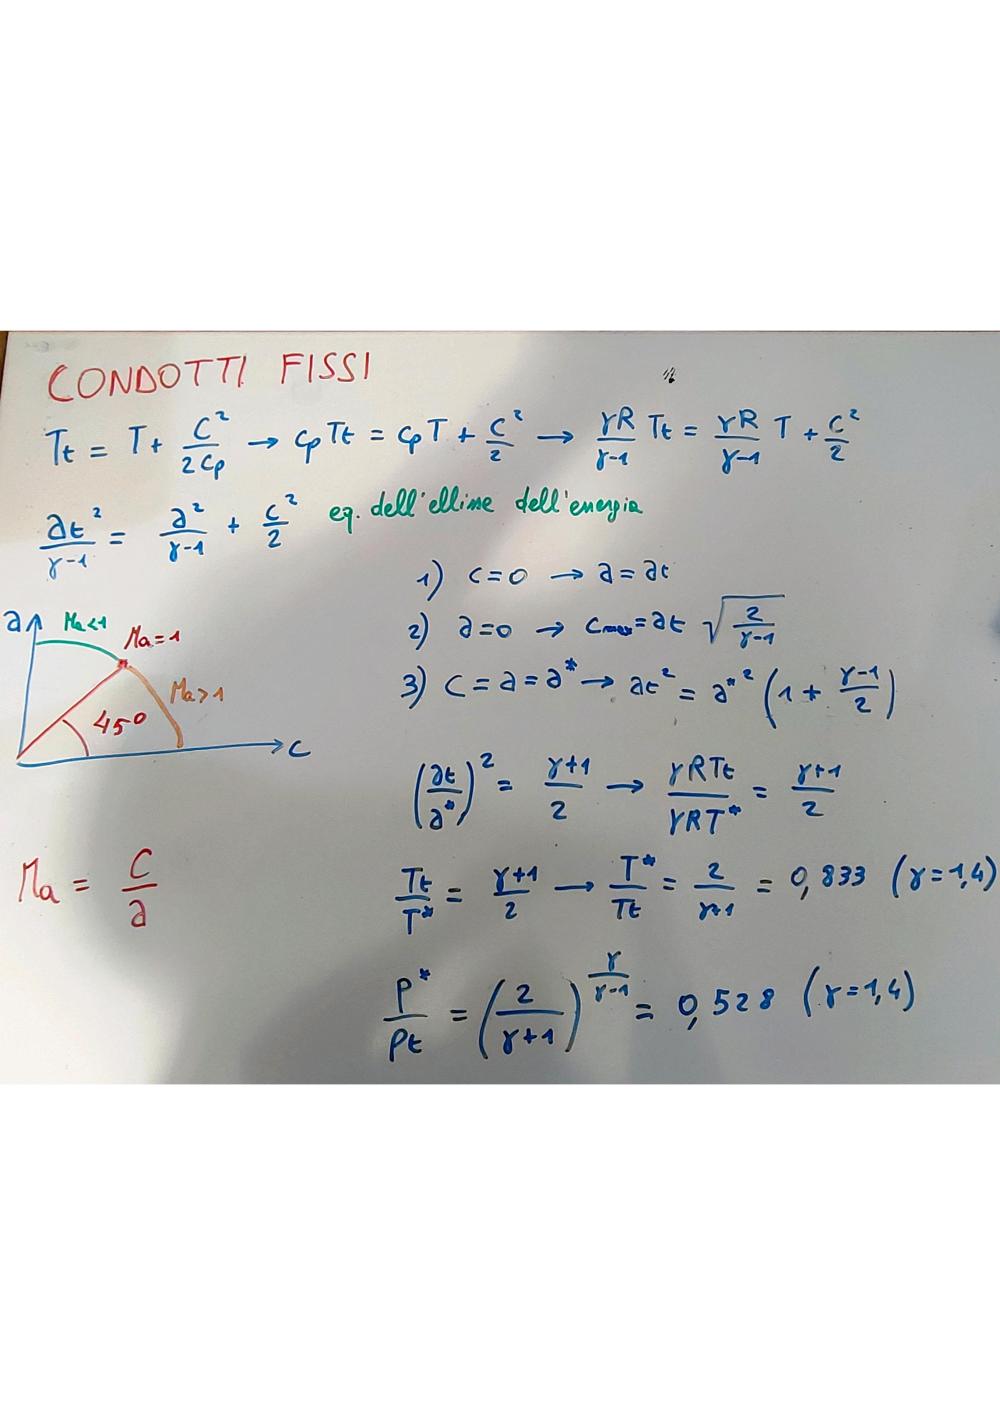 CONDOTTI FISSI
Tt = T + c²/2cp → cp Tt = cp T + c²/2 → γR/γ-1 Tt = γR/γ-1 T + c²/2
at²/γ-1 = a²/γ-1 + c²/2 eq. dell'ellisse dell'energia
1) c=0 → a = at
2) a=0 → cmax = at √(2/γ-1)
3) c = a = a* → at² = a*² (1 + γ-1/2)
a Ma<1 Ma=1
Ma>1
45°
c
(at/a*)² = γ+1/2 → γRTt/γRT* = γ+1/2
Ma = c/a
Tt/T* = γ+1/2 → T*/Tt = 2/γ+1 = 0,833 (γ=1,4)
p*/pt = (2/γ+1)^(γ/γ-1) = 0,528 (γ=1,4)